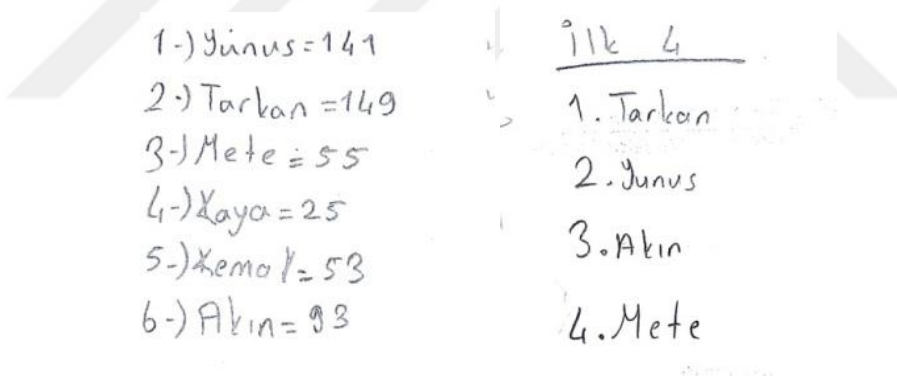 1-) Yunus = 141
2-) Tarkan = 149
3-) Mete = 55
4-) Kaya = 25
5-) Kemal = 53
6-) Akın = 93
İlk 4
1. Tarkan
2. Yunus
3. Akın
4. Mete